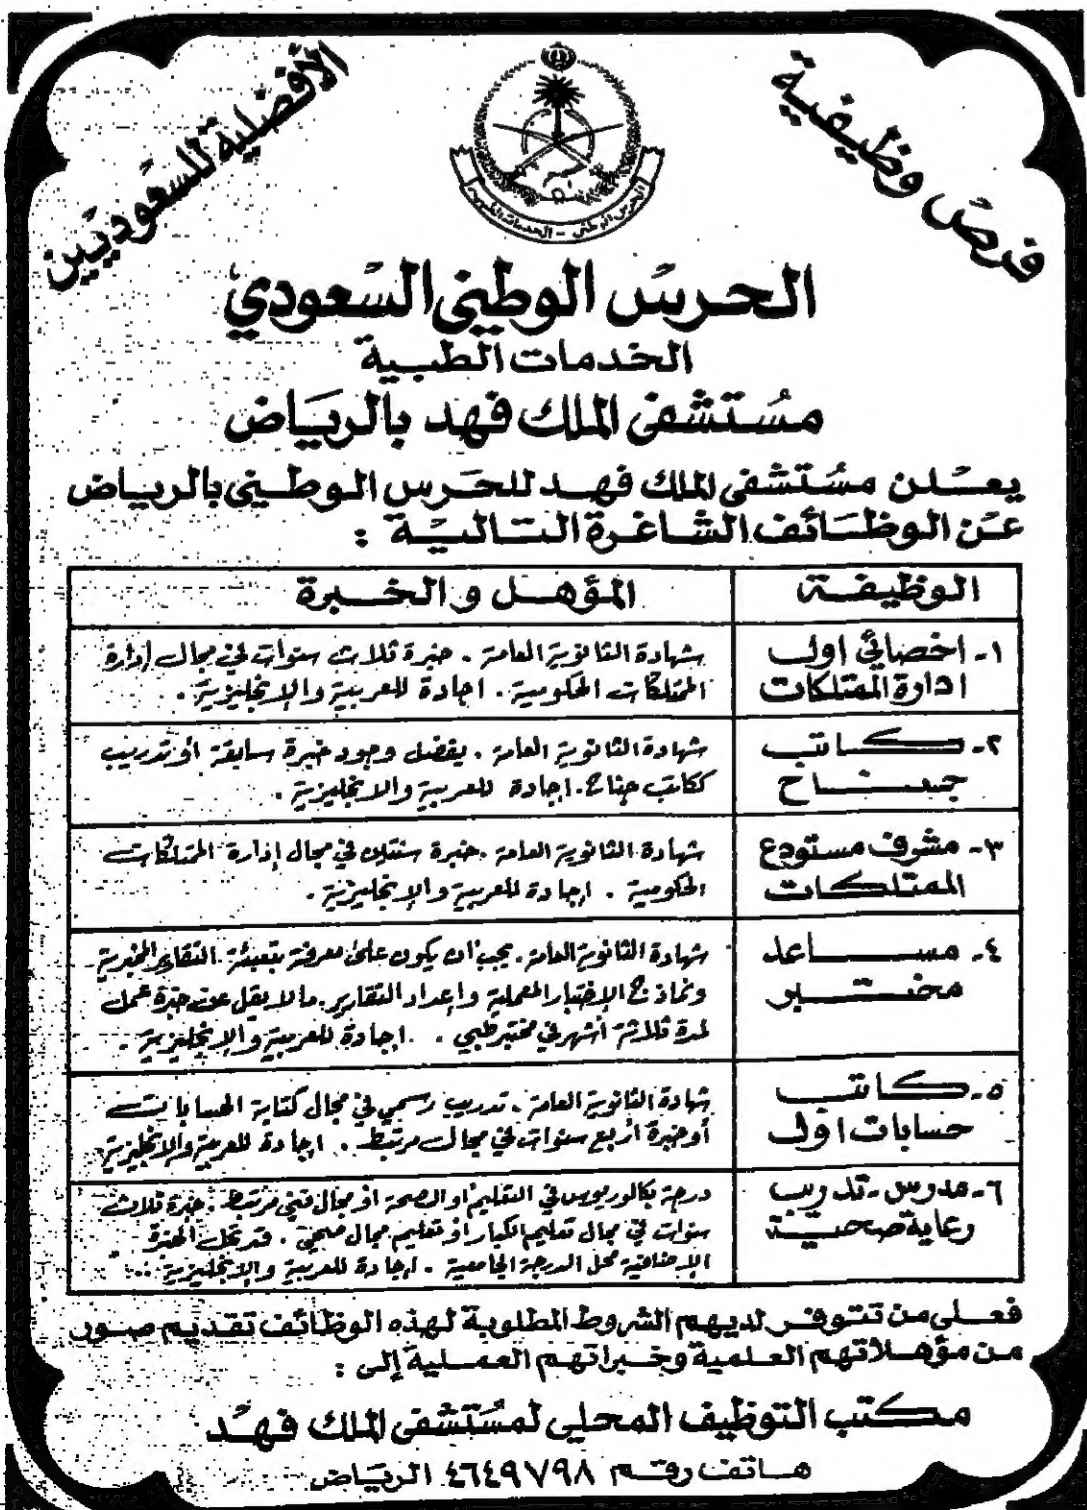 فرص وظيفية
الأفضلية للسعوديين
الحرس الوطني - الخدمات الطبية
الحرس الوطني السعودي
الخدمات الطبية
مستشفى الملك فهد بالرياض
يعلن مستشفى الملك فهد للحرس الوطني بالرياض
عن الوظائف الشاغرة التالية :
الوظيفة
المؤهل والخبرة
١- اخصائي اول
ادارة الممتلكات
شهادة الثانوية العامة . خبرة ثلاث سنوات في مجال إدارة
الممتلكات الحكومية . اجادة للعربية والإنجليزية .
٢- كاتب
جناح
شهادة الثانوية العامة . يفضل وجود خبرة سابقة أو تدريب
ككاتب جناح . اجادة للعربية والانجليزية .
٣- مشرف مستودع
الممتلكات
شهادة الثانوية العامة . خبرة سنتان في مجال إدارة الممتلكات
الحكومية . إجادة للعربية والإنجليزية .
٤- مساعد
مختبر
شهادة الثانوية العامة . يجب ان يكون على معرفة بتعبئة التقارير المخبرية
ونماذج الإختبار المعملية وإعداد التقارير . ما لا يقل عن خبرة عمل
لمدة ثلاثة أشهر في مختبر طبي . اجادة للعربية والإنجليزية .
٥- كاتب
حسابات اول
شهادة الثانوية العامة . تدريب رسمي في مجال كتابة الحسابات
أو خبرة أربع سنوات في مجال مرتبط . اجادة للعربية والإنجليزية
٦- مدرس - تدريب
رعاية صحية
درجة بكالوريوس في التعليم أو الصحة أو مجال فني مرتبط . خبرة ثلاث
سنوات في مجال تعليم الكبار أو تعليم مجال صحي . قد تحل الخبرة
الإضافية محل الدرجة الجامعية . إجادة للعربية والإنجليزية .
فعلى من تتوفر لديهم الشروط المطلوبة لهذه الوظائف تقديم صور
من مؤهلاتهم العلمية وخبراتهم العملية إلى :
مكتب التوظيف المحلي لمستشفى الملك فهد
هاتف رقم ٤٦٤٩٧٩٨ الرياض